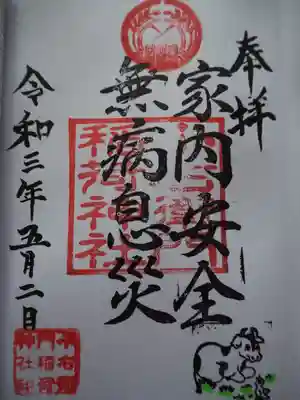 奉拝
家内安全
無病息災
令和三年五月二日
稲荷神社